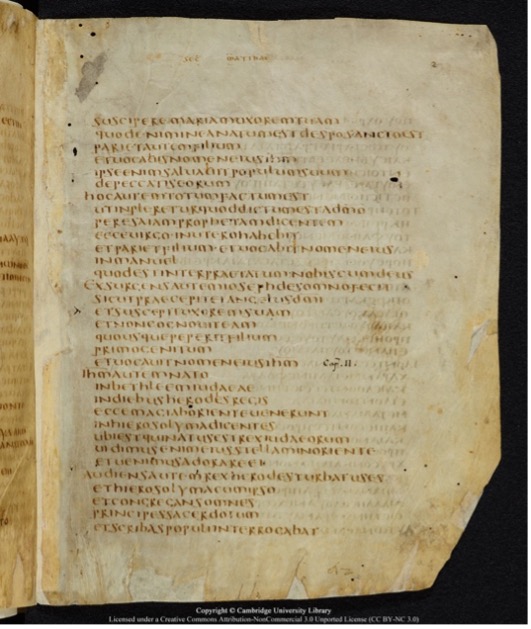 SEC MATTHAE
SUSCIPERE MARIAM UXOREM TUAM
QUOD ENIM IN EA NATUM EST DE SPO SANCTO EST
PARIET AUTEM FILIUM
ET UOCABIS NOMEN EIUS IHM
IPSE ENIM SALUABIT POPULUM SUUM
DE PECCATIS EORUM
HOC AUTEM TOTUM FACTUM EST
UT INPLERETUR QUOD DICTUM EST A DMO
PER ESAIAM PROPHETAM DICENTEM
ECCE UIRGO IN UTERO HABEBIT
ET PARIET FILIUM ET UOCABIT NOMEN EIUS
INMANUEL
QUOD EST INTERPRAETATUM NOBISCUM DEUS
EXSURGENS AUTEM IOSEPH DE SOMNO FECIT
SICUT PRAECEPIT EI ANGELUS DMI
ET SUSCEPIT UXOREM SUAM
ET NON COGNOUIT EAM
QUOUSQUE PEPERIT FILIUM
PRIMOGENITUM
ET UOCAUIT NOMEN EIUS IHM Cap. II.
IHM AUTEM NATO
IN BETHLEEM IUDAEAE
IN DIEBUS HERODES REGIS
ECCE MAGI AB ORIENTE UENERUNT
IN HIEROSOLYMA DICENTES
UBI EST QUI NATUS EST REX IUDAEORUM
UIDIMUS ENIM EIUS STELLAM IN ORIENTE
ET UENIMUS ADORARE EI
AUDIENS AUTEM REX HERODES TURBATUS ES
ET HIEROSOLYMA CUM IPSO
ET CONGREGANS OMNES
PRINCIPES SACERDOTUM
ET SCRIBAS POPULI INTERROGABAT
Copyright © Cambridge University Library
Licensed under a Creative Commons Attribution-NonCommercial 3.0 Unported License (CC BY-NC 3.0)